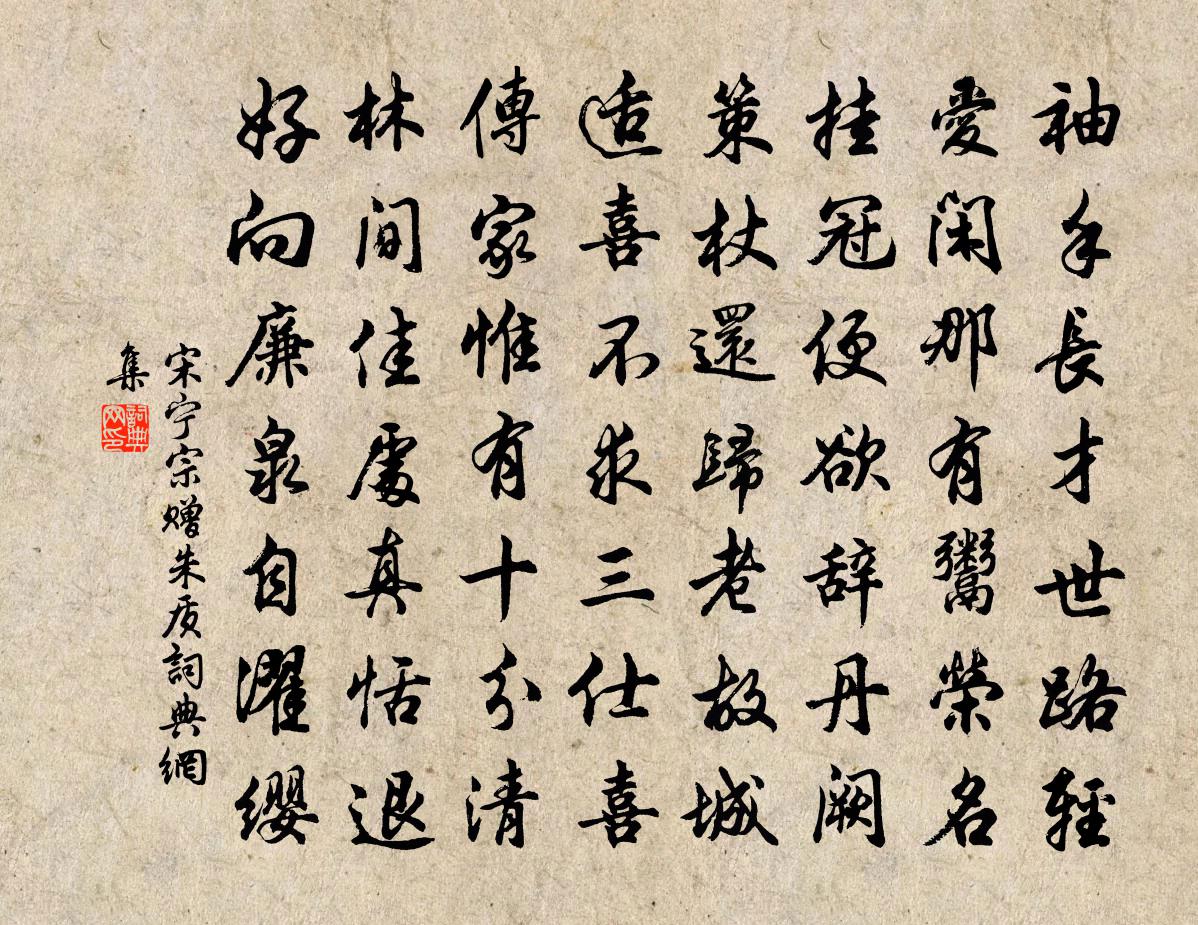 袖手長才世路輕
愛閑那有鬻榮名
挂冠便欲辞丹闕
策杖還歸老故城
适喜不求三仕喜
傳家惟有十分清
林間佳處真恬退
好向廉泉自濯纓
宋宁宗赠朱质詞典網
集
詞典
网印